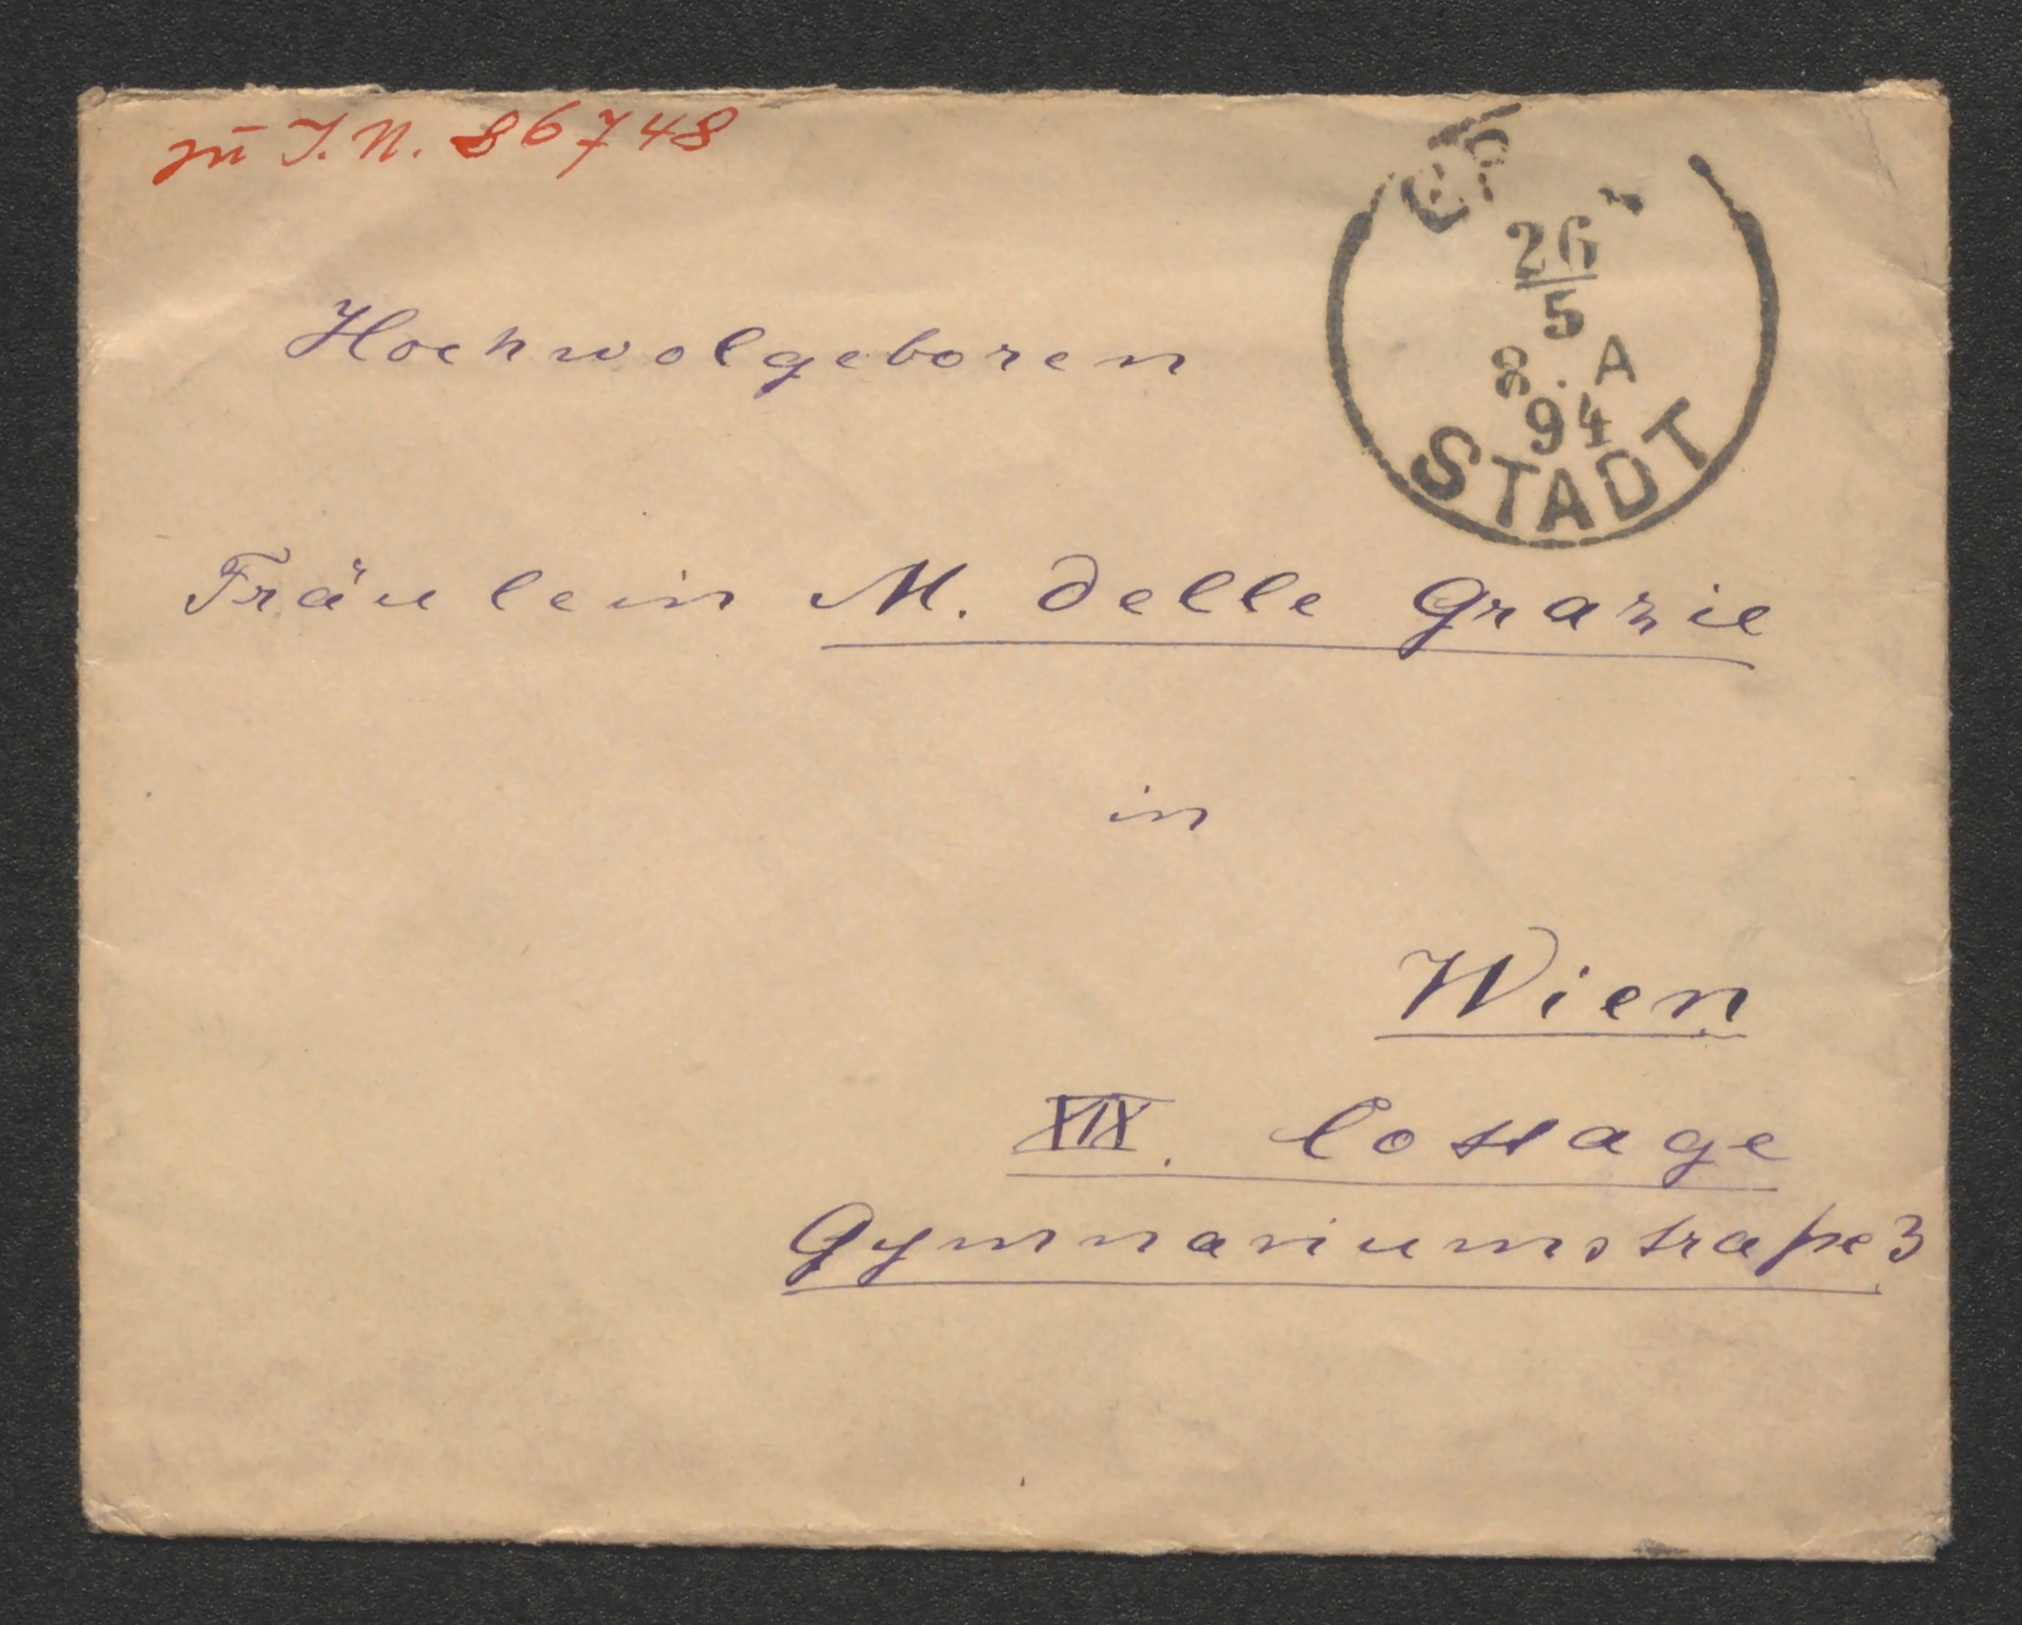 zu I.N. 86748
26
5
8. A
94
STADT
Hochwolgeboren
Fräulein M. delle Grazie
in
Wien
XIX. Cottage
Gymnasiumstraße 3